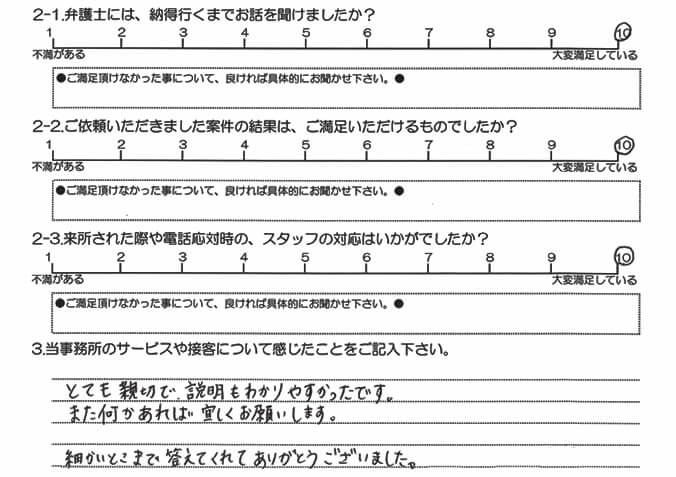 2-1.弁護士には、納得行くまでお話を聞けましたか？
1 2 3 4 5 6 7 8 9 10
不満がある 大変満足している
●ご満足頂けなかった事について、良ければ具体的にお聞かせ下さい。●
2-2.ご依頼いただきました案件の結果は、ご満足いただけるものでしたか？
1 2 3 4 5 6 7 8 9 10
不満がある 大変満足している
●ご満足頂けなかった事について、良ければ具体的にお聞かせ下さい。●
2-3.来所された際や電話応対時の、スタッフの対応はいかがでしたか？
1 2 3 4 5 6 7 8 9 10
不満がある 大変満足している
●ご満足頂けなかった事について、良ければ具体的にお聞かせ下さい。●
3.当事務所のサービスや接客について感じたことをご記入下さい。
とても親切で、説明もわかりやすかったです。
また何かあれば宜しくお願いします。
細かいとこまで答えてくれてありがとうございました。